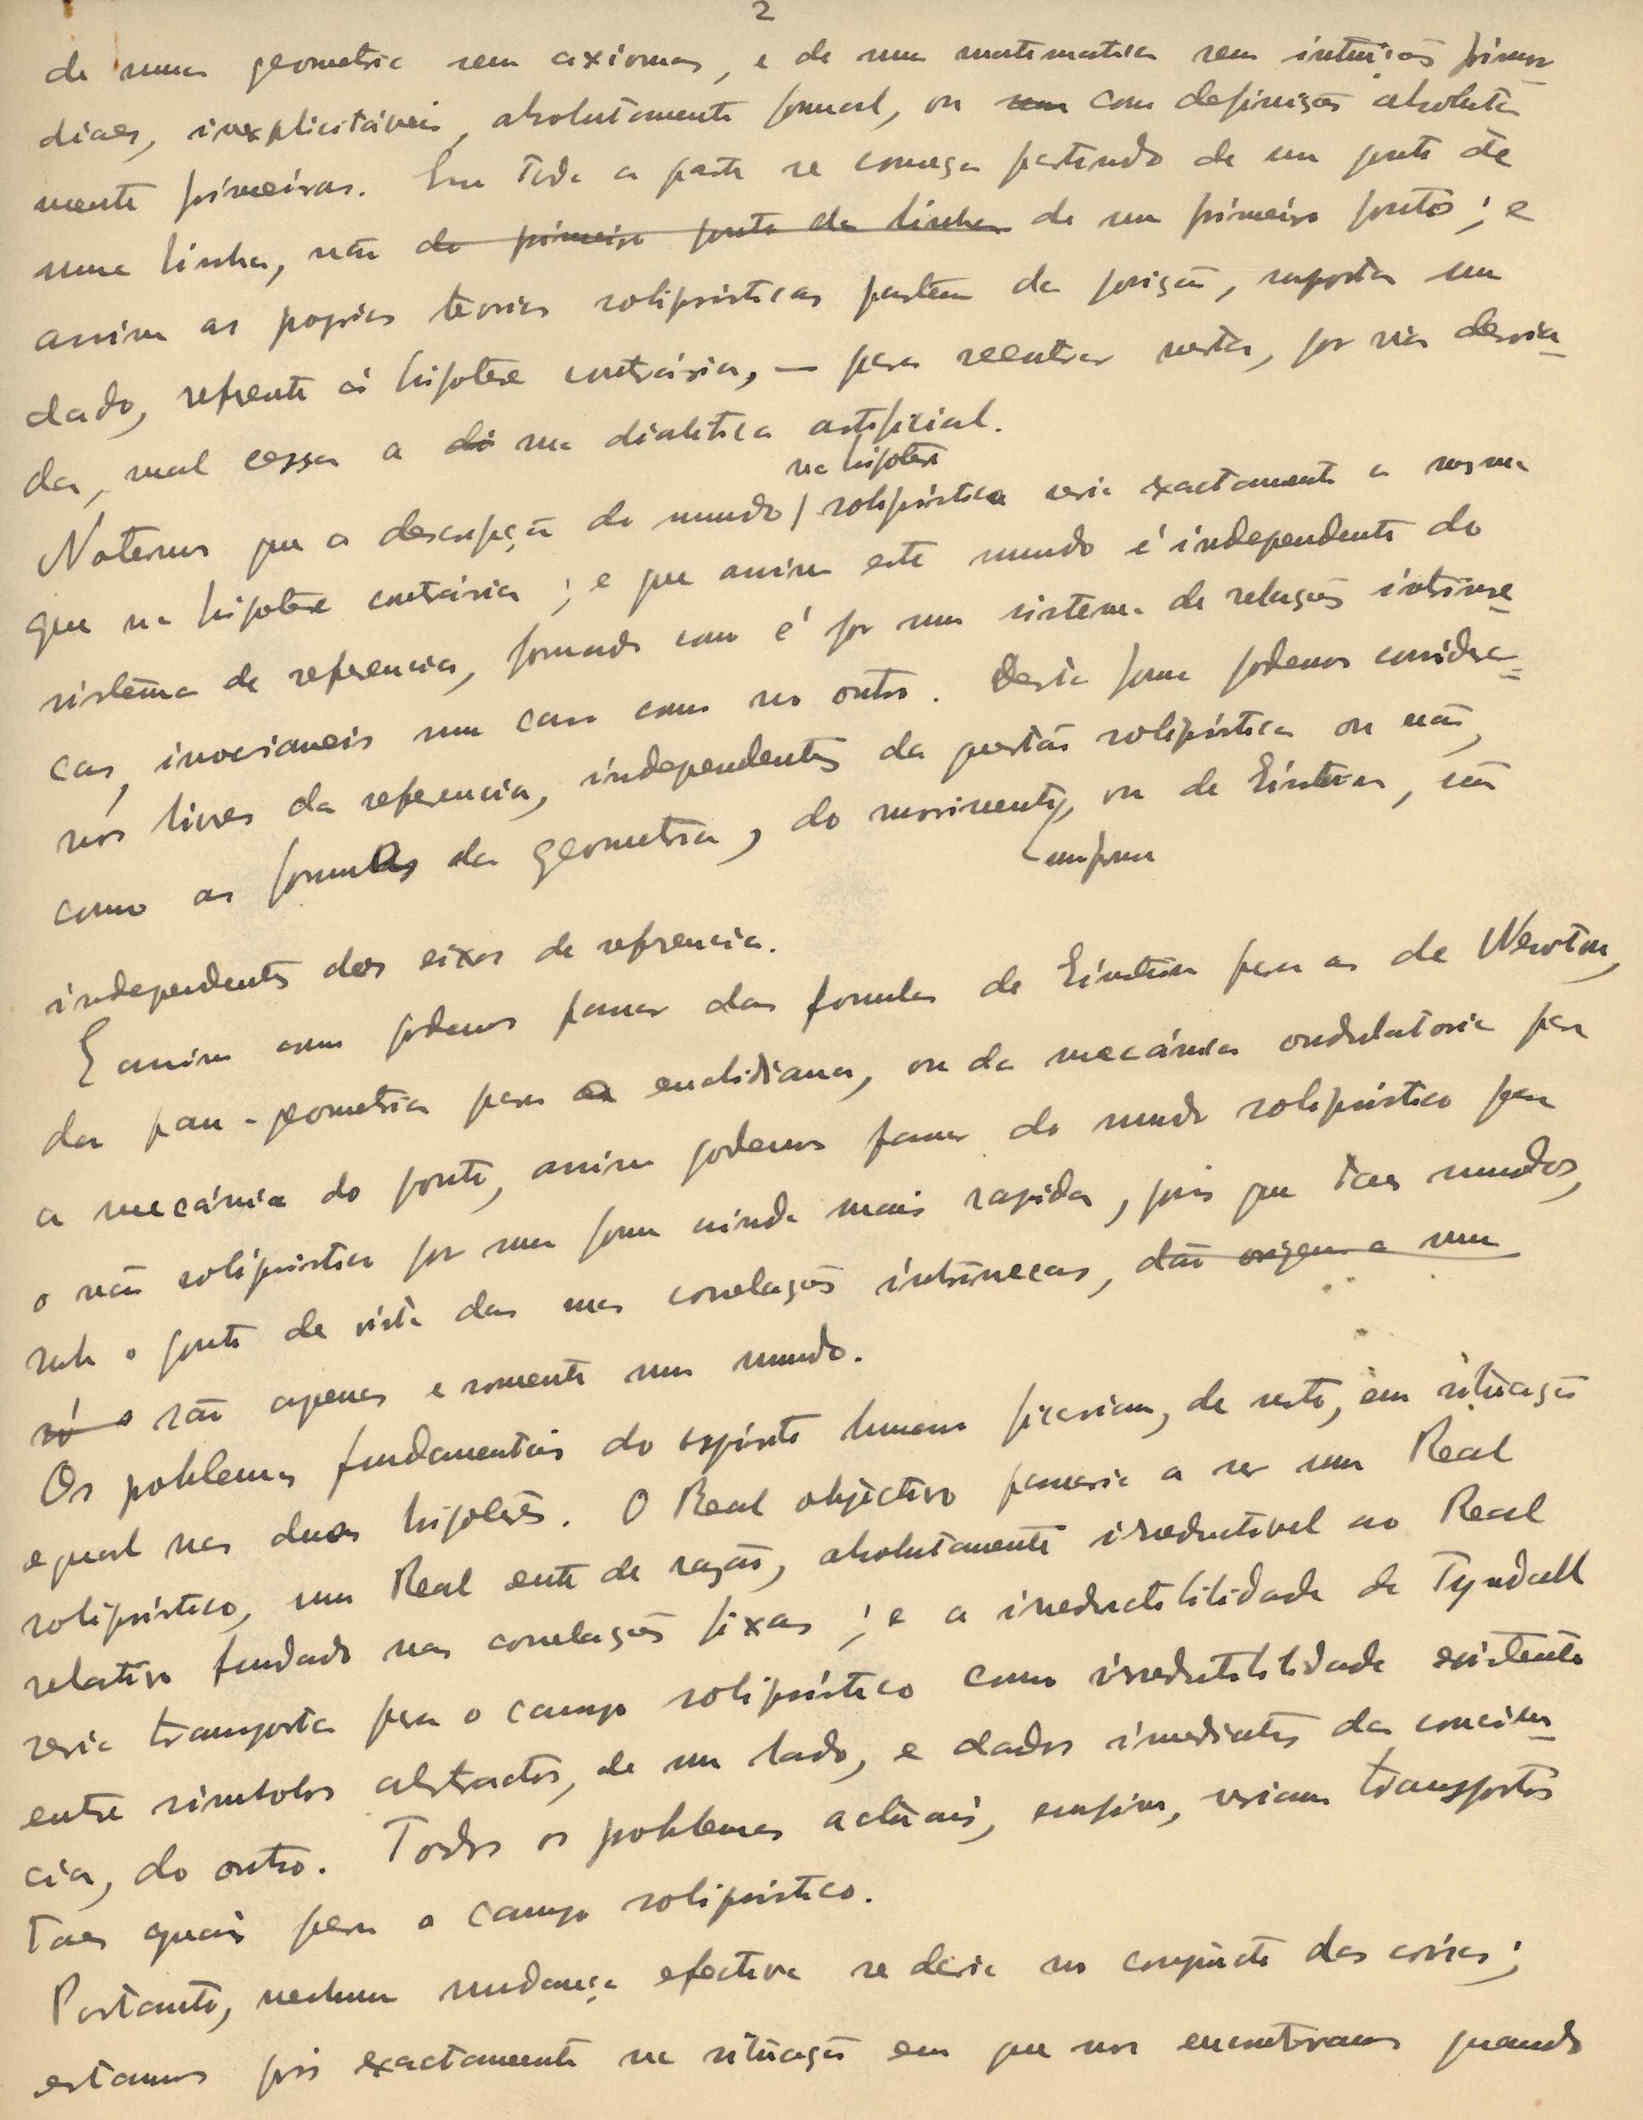 2
de uma geometria sem axiomas, e de uma matematica sem intuições primor-
diaes, inexplicitáveis, absolutamente formal, ou sem com definições absoluta-
mente primeiras. Em toda a parte se começa partindo de um ponto de
uma linha, não do primeiro ponto da linha de um primeiro ponto; e
assim as proprias teorias solipsisticas partem da posição, suposta um
dado, referente á hipotese contrária, — para reentrar nesta, por via desvia-
da, mal cessa a di sua dialetica artificial.
na hipotese
Notemos que a descrição do mundo / solipsistica seria exactamente a mesma
que na hipotese contrária; e que assim este mundo é independente do
sistema de referencia, formado como é por um sistema de relações intrinse-
cas, invariaveis num caso como no outro. Desta forma podemos considerar-
nos livres da referencia, independentes da questão solipsistica ou não,
como as formulas da geometria, do movimento, ou de Einstein, são
uniforme
independentes dos eixos de referencia.
E assim como podemos passar das formulas de Einstein para as de Newton,
da pan-geometria para a euclidiana, ou da mecánica ondulatoria para
a mecánica do ponto, assim podemos passar do mundo solipsistico para
o não solipsistico por uma forma ainda mais rapida, pois que taes mundos,
sob o ponto de vista das suas correlações intrinsecas, dão origem a um
só são apenas e somente um mundo.
Os problemas fundamentais do espirito humano ficariam, de resto, em situação
egual nas duas hipoteses. O Real objectivo passaria a ser um Real
solipsistico, um Real ente de razão, absolutamente irreductivel ao Real
relativo fundado nas correlações fixas; e a irreductibilidade de Tyndall
seria transposta para o campo solipsistico como irredutibilidade existente
entre simbolos abstractos, de um lado, e dados imediatos da conciên-
cia, do outro. Todos os problemas actuais, emfim, seriam transpostos
taes quais para o campo solipsistico.
Portanto, nenhuma mudança efectiva se daria no conjuncto das coisas;
estamos pois exactamente na situação em que nos encontramos quando